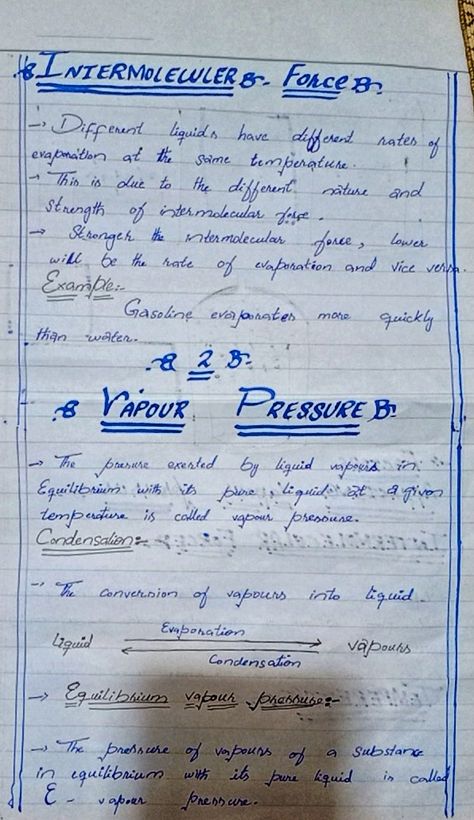 INTERMOLECULER - FORCE
→ Different liquids have different rates of
evaporation at the same temperature.
→ This is due to the different nature and
strength of intermolecular force.
→ Stronger the intermolecular force, lower
will be the rate of evaporation and vice versa.
Example:-
Gasoline evaporates more quickly
than water.
2
VAPOUR PRESSURE
→ The pressure exerted by liquid vapours in
Equilibrium with its pure liquid at a given
temperature is called vapour pressure.
Condensation:-
→ The conversion of vapours into liquid
Evaporation
liquid vapours
Condensation
→ Equilibrium vapour pressure:-
→ The pressure of vapours of a substance
in equilibrium with its pure liquid is called
E - vapour pressure.